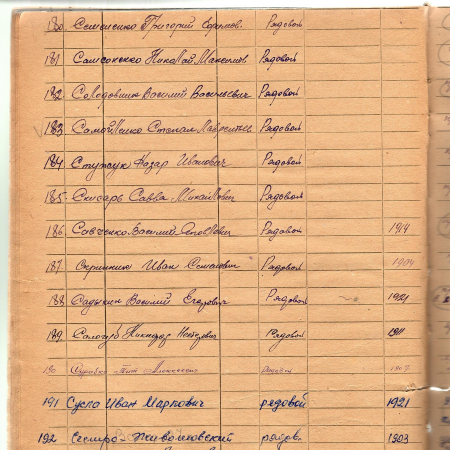 180 Семененко Григорий Ефимов. Рядовой
181 Самсоненко Николай Максимов Рядовой
182 Солодовник Василий Васильевич Рядовой
183 Самойленко Степан Рядовой
184 Стужук Назар Иванович Рядовой
185 Слисарь Савва Михайлович Рядовой
186 Савченко Василий Рядовой
187 Скрынник Иван Семенович Рядовой 1904
188 Садыкин Василий Егорович Рядовой 1921
189 Сологуб Никифор Нестерович Рядовой 1911
190 Рядовой
191 Сусло Иван Маркович редовой 1921
192 рядов. 1903